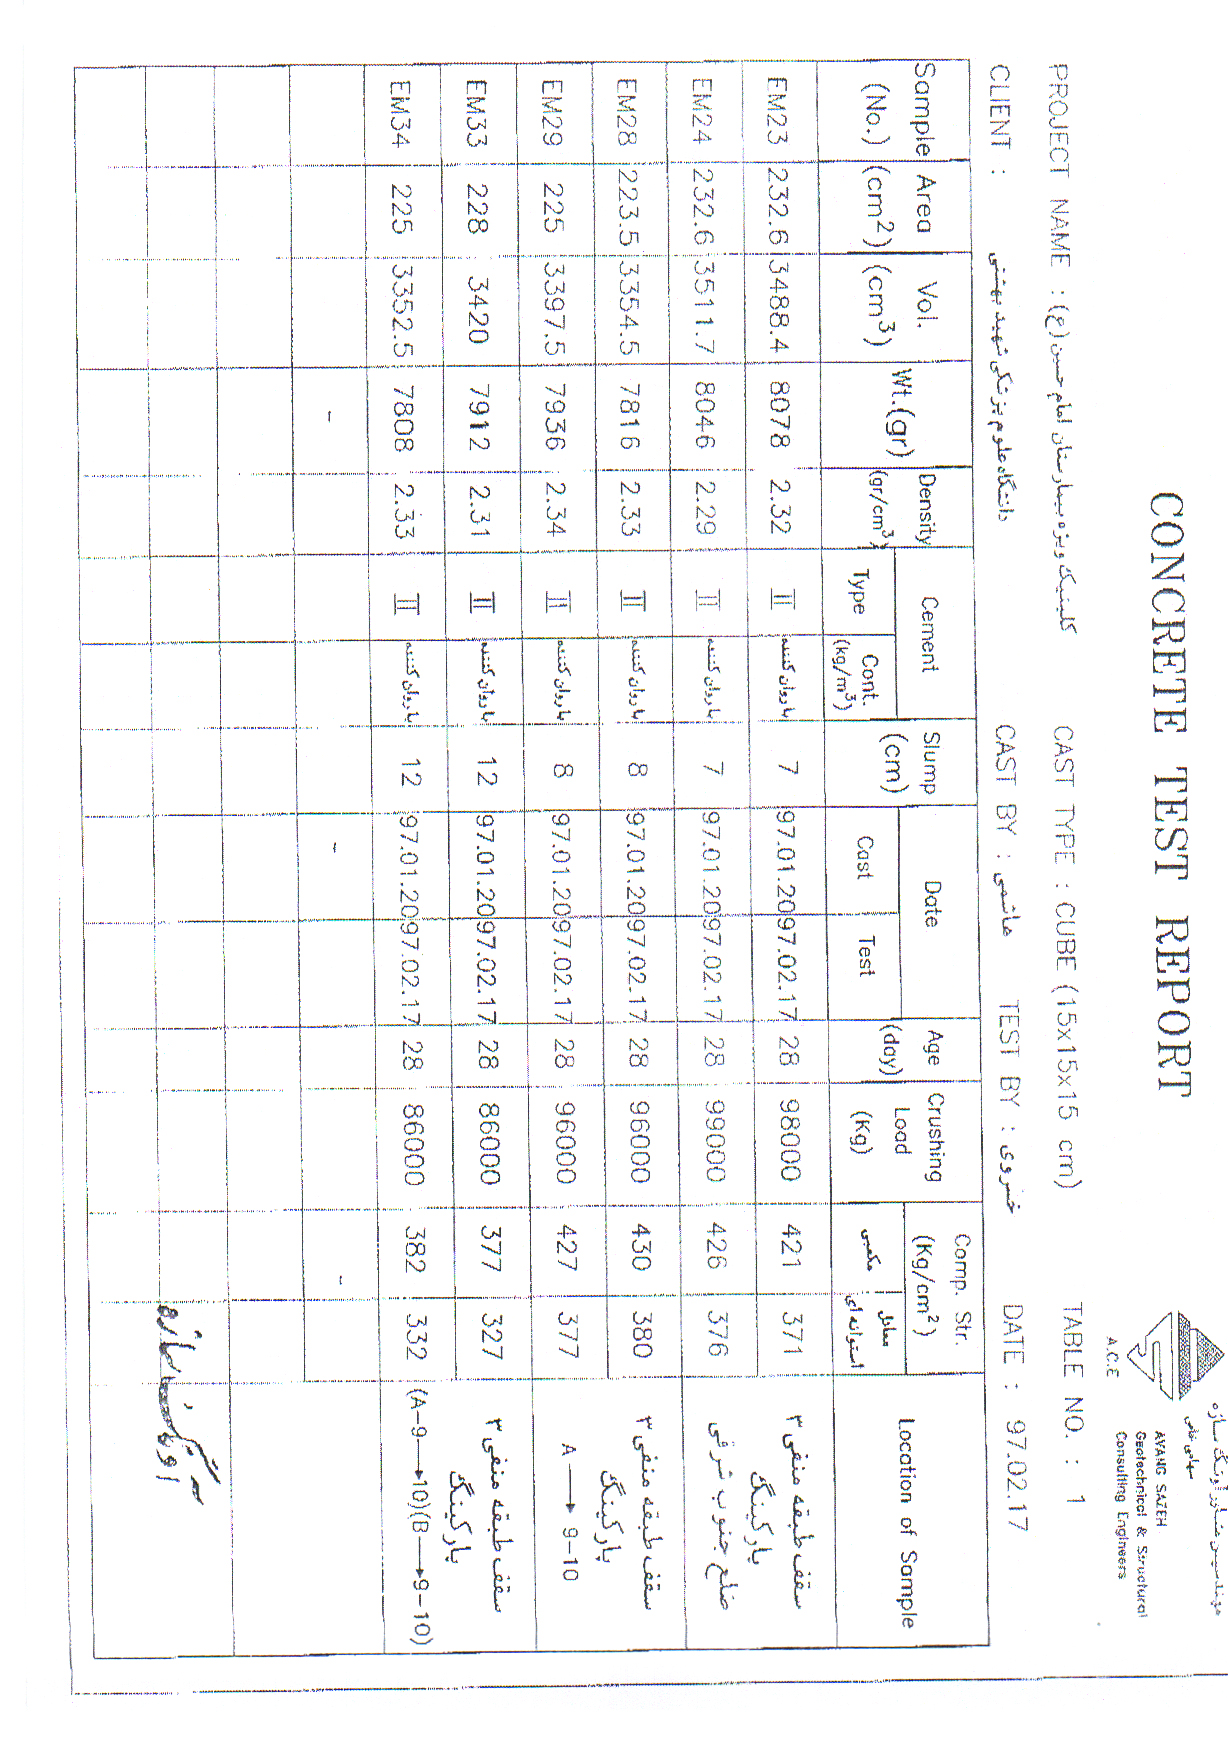 CONCRETE TEST REPORT
مهندسین مشاور آونگ سازه
سهامی خاص
A.C.E
AVANG SAZEH
Geotechnical & Structural
Consulting Engineers
PROJECT NAME : کلینیک ویژه بیمارستان امام حسین (ع) CAST TYPE : CUBE (15x15x15 cm) TABLE NO. : 1
CLIENT : دانشگاه علوم پزشکی شهید بهشتی CAST BY : هاشمی TEST BY : خسروی DATE : 97.02.17
Sample (No.) Area (cm2) Vol. (cm3) Wt.(gr) Density (gr/cm3) Cement Type Cont. (kg/m3) Slump (cm) Date Cast Test Age (day) Crushing Load (Kg) Comp. Str. (Kg/cm2) مکعبی معادل استوانه ای Location of Sample
EM23 232.6 3488.4 8078 2.32 II با روان کننده 7 97.01.20 97.02.17 28 98000 421 371 سقف طبقه منفی ۳ پارکینگ
EM24 232.6 3511.7 8046 2.29 II با روان کننده 7 97.01.20 97.02.17 28 99000 426 376 ضلع جنوب شرقی
EM28 223.5 3354.5 7816 2.33 II با روان کننده 8 97.01.20 97.02.17 28 96000 430 380 سقف طبقه منفی ۳ پارکینگ
EM29 225 3397.5 7936 2.34 II با روان کننده 8 97.01.20 97.02.17 28 96000 427 377 A → 9-10
EM33 228 3420 7912 2.31 II با روان کننده 12 97.01.20 97.02.17 28 86000 377 327 سقف طبقه منفی ۳ پارکینگ
EM34 225 3352.5 7808 2.33 II با روان کننده 12 97.01.20 97.02.17 28 86000 382 332 (A-9→10)(B→9-10)
- - -